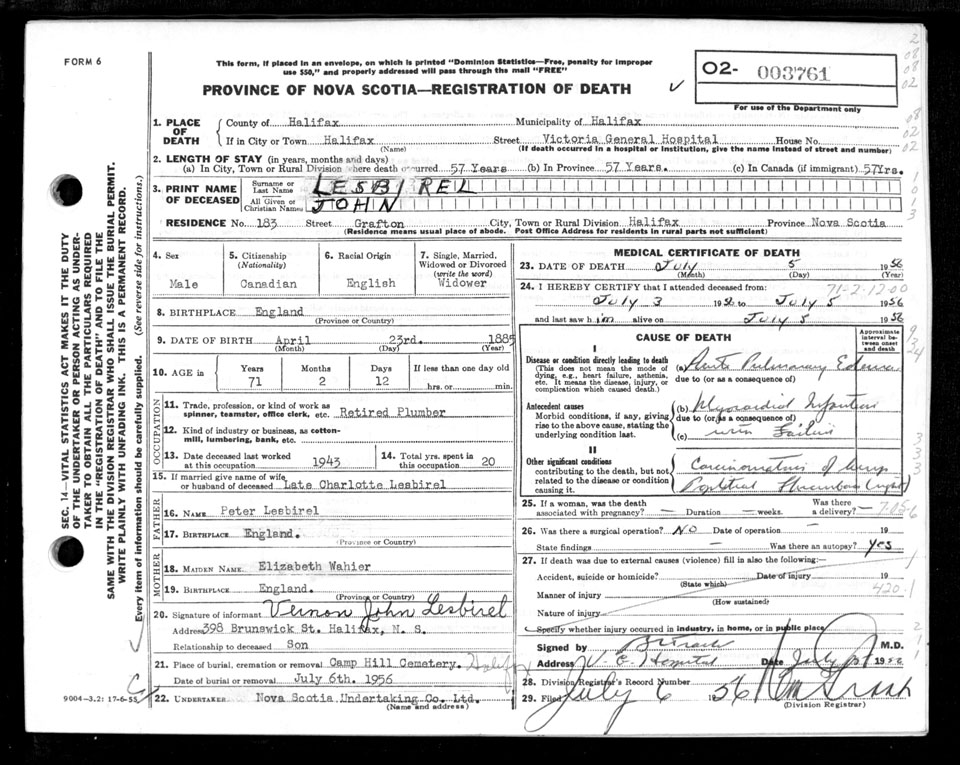 FORM 6
This form, if placed in an envelope, on which is printed "Dominion Statistics—Free, penalty for improper
use $50," and properly addressed will pass through the mail "FREE"
PROVINCE OF NOVA SCOTIA—REGISTRATION OF DEATH
02- 003761
For use of the Department only
1. PLACE OF DEATH
County of Halifax Municipality of Halifax
If in City or Town Halifax Street Victoria General Hospital House No.
(Name) (If death occurred in a hospital or institution, give the name instead of street and number)
2. LENGTH OF STAY (in years, months and days)
(a) In City, Town or Rural Division where death occurred 57 Years (b) In Province 57 Years. (c) In Canada (if immigrant) 57Yrs.
3. PRINT NAME OF DECEASED
Surname or Last Name LESBIREL
All Given or Christian Names JOHN
RESIDENCE No. 183 Street Grafton City, Town or Rural Division Halifax Province Nova Scotia
(Residence means usual place of abode. Post Office Address for residents in rural parts not sufficient)
4. Sex
Male
5. Citizenship
(Nationality)
Canadian
6. Racial Origin
English
7. Single, Married,
Widowed or Divorced
(write the word)
Widower
8. BIRTHPLACE England
(Province or Country)
9. DATE OF BIRTH April 23rd. 1885
(Month) (Day) (Year)
10. AGE in
Years Months Days If less than one day old
71 2 12 hrs. or min.
OCCUPATION
11. Trade, profession, or kind of work as
spinner, teamster, office clerk, etc. Retired Plumber
12. Kind of industry or business, as cotton-
mill, lumbering, bank, etc.
13. Date deceased last worked
at this occupation 1943
14. Total yrs. spent in
this occupation 20
15. If married give name of wife
or husband of deceased Late Charlotte Lesbirel
FATHER
16. NAME Peter Lesbirel
17. BIRTHPLACE England.
(Province or Country)
MOTHER
18. MAIDEN NAME Elizabeth Wahier
19. BIRTHPLACE England.
(Province or Country)
20. Signature of informant Vernon John Lesbirel
Address 398 Brunswick St. Halifax, N. S.
Relationship to deceased Son
21. Place of burial, cremation or removal Camp Hill Cemetery. Halifax
Date of burial or removal July 6th. 1956
22. UNDERTAKER Nova Scotia Undertaking Co. Ltd.
(Name and address)
9004-3.2: 17-6-55
MEDICAL CERTIFICATE OF DEATH
23. DATE OF DEATH July 5 1956
(Month) (Day) (Year)
24. I HEREBY CERTIFY that I attended deceased from:
71-2-12.00
July 3 1956 to July 5 1956
and last saw him alive on July 5 1956
CAUSE OF DEATH
Approximate interval between onset and death
I
Disease or condition directly leading to death
(This does not mean the mode of
dying, e.g., heart failure, asthenia,
etc. It means the disease, injury, or
complication which caused death.)
(a) Acute Pulmonary Edema
due to (or as a consequence of)
Antecedent causes
Morbid conditions, if any, giving
rise to the above cause, stating the
underlying condition last.
(b) Myocardial Infarction
due to (or as a consequence of)
(c) with Failure
II
Other significant conditions
contributing to the death, but not
related to the disease or condition
causing it.
Carcinomatosis of lungs
Popliteal Thrombosis (right)
25. If a woman, was the death
associated with pregnancy? — Duration — weeks. Was there a delivery? —
26. Was there a surgical operation? NO Date of operation — 19
State findings — Was there an autopsy? Yes
27. If death was due to external causes (violence) fill in also the following:
Accident, suicide or homicide? Date of injury 19
(State which)
Manner of injury 420-1
(How sustained)
Nature of injury
Specify whether injury occurred in industry, in home, or in public place
Signed by M.D.
Address V. G. Hospital Date July 1956
28. Division Registrar's Record Number
29. Filed July 6 1956
(Division Registrar)
SEC. 14—VITAL STATISTICS ACT MAKES IT THE DUTY
OF THE UNDERTAKER OR PERSON ACTING AS UNDER-
TAKER TO OBTAIN ALL THE PARTICULARS REQUIRED
IN THE "REGISTRATION OF DEATH" AND TO FILE THE
SAME WITH THE DIVISION REGISTRAR WHO SHALL ISSUE THE BURIAL PERMIT.
WRITE PLAINLY WITH UNFADING INK. THIS IS A PERMANENT RECORD.
Every item of information should be carefully supplied. (See reverse side for instructions.)